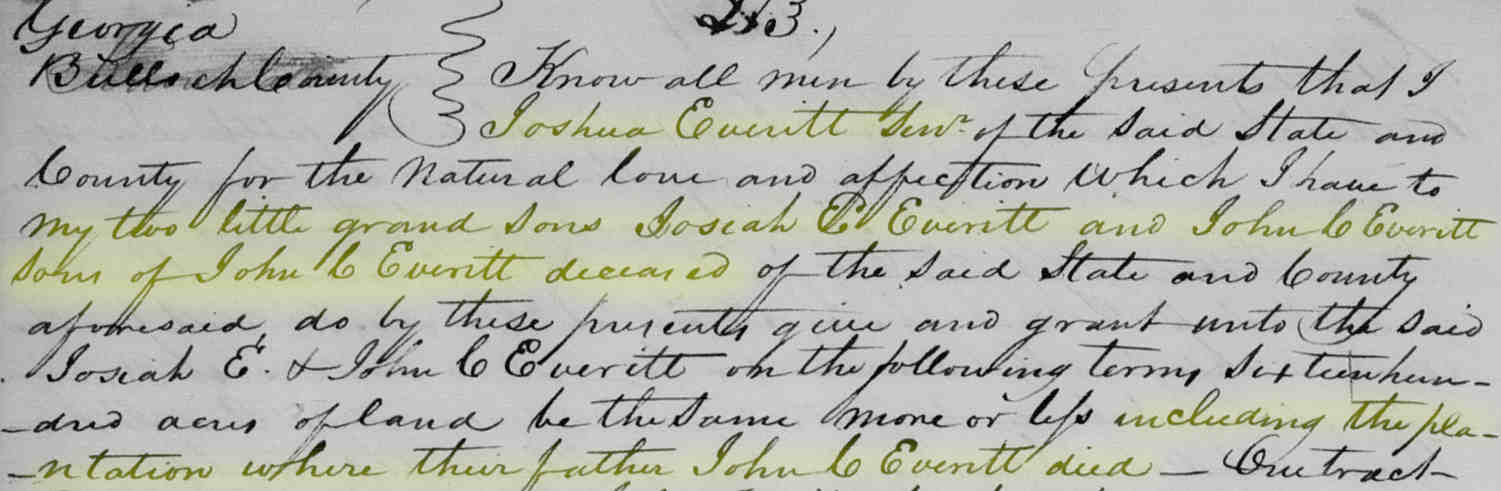 Georgia 213.,
Bulloch County Know all men by these presents that I
Joshua Everitt Senr. of the said State and
County for the Natural love and affection which I have to
my two little grand sons Josiah E Everitt and John C Everitt
sons of John C Everitt deceased of the said State and County
aforesaid, do by these presents give and grant unto the said
Josiah E. & John C Everitt on the following terms sixteen hun-
-dred acres of land be the same more or less including the pla-
-ntation where their father John C Everitt died — One tract